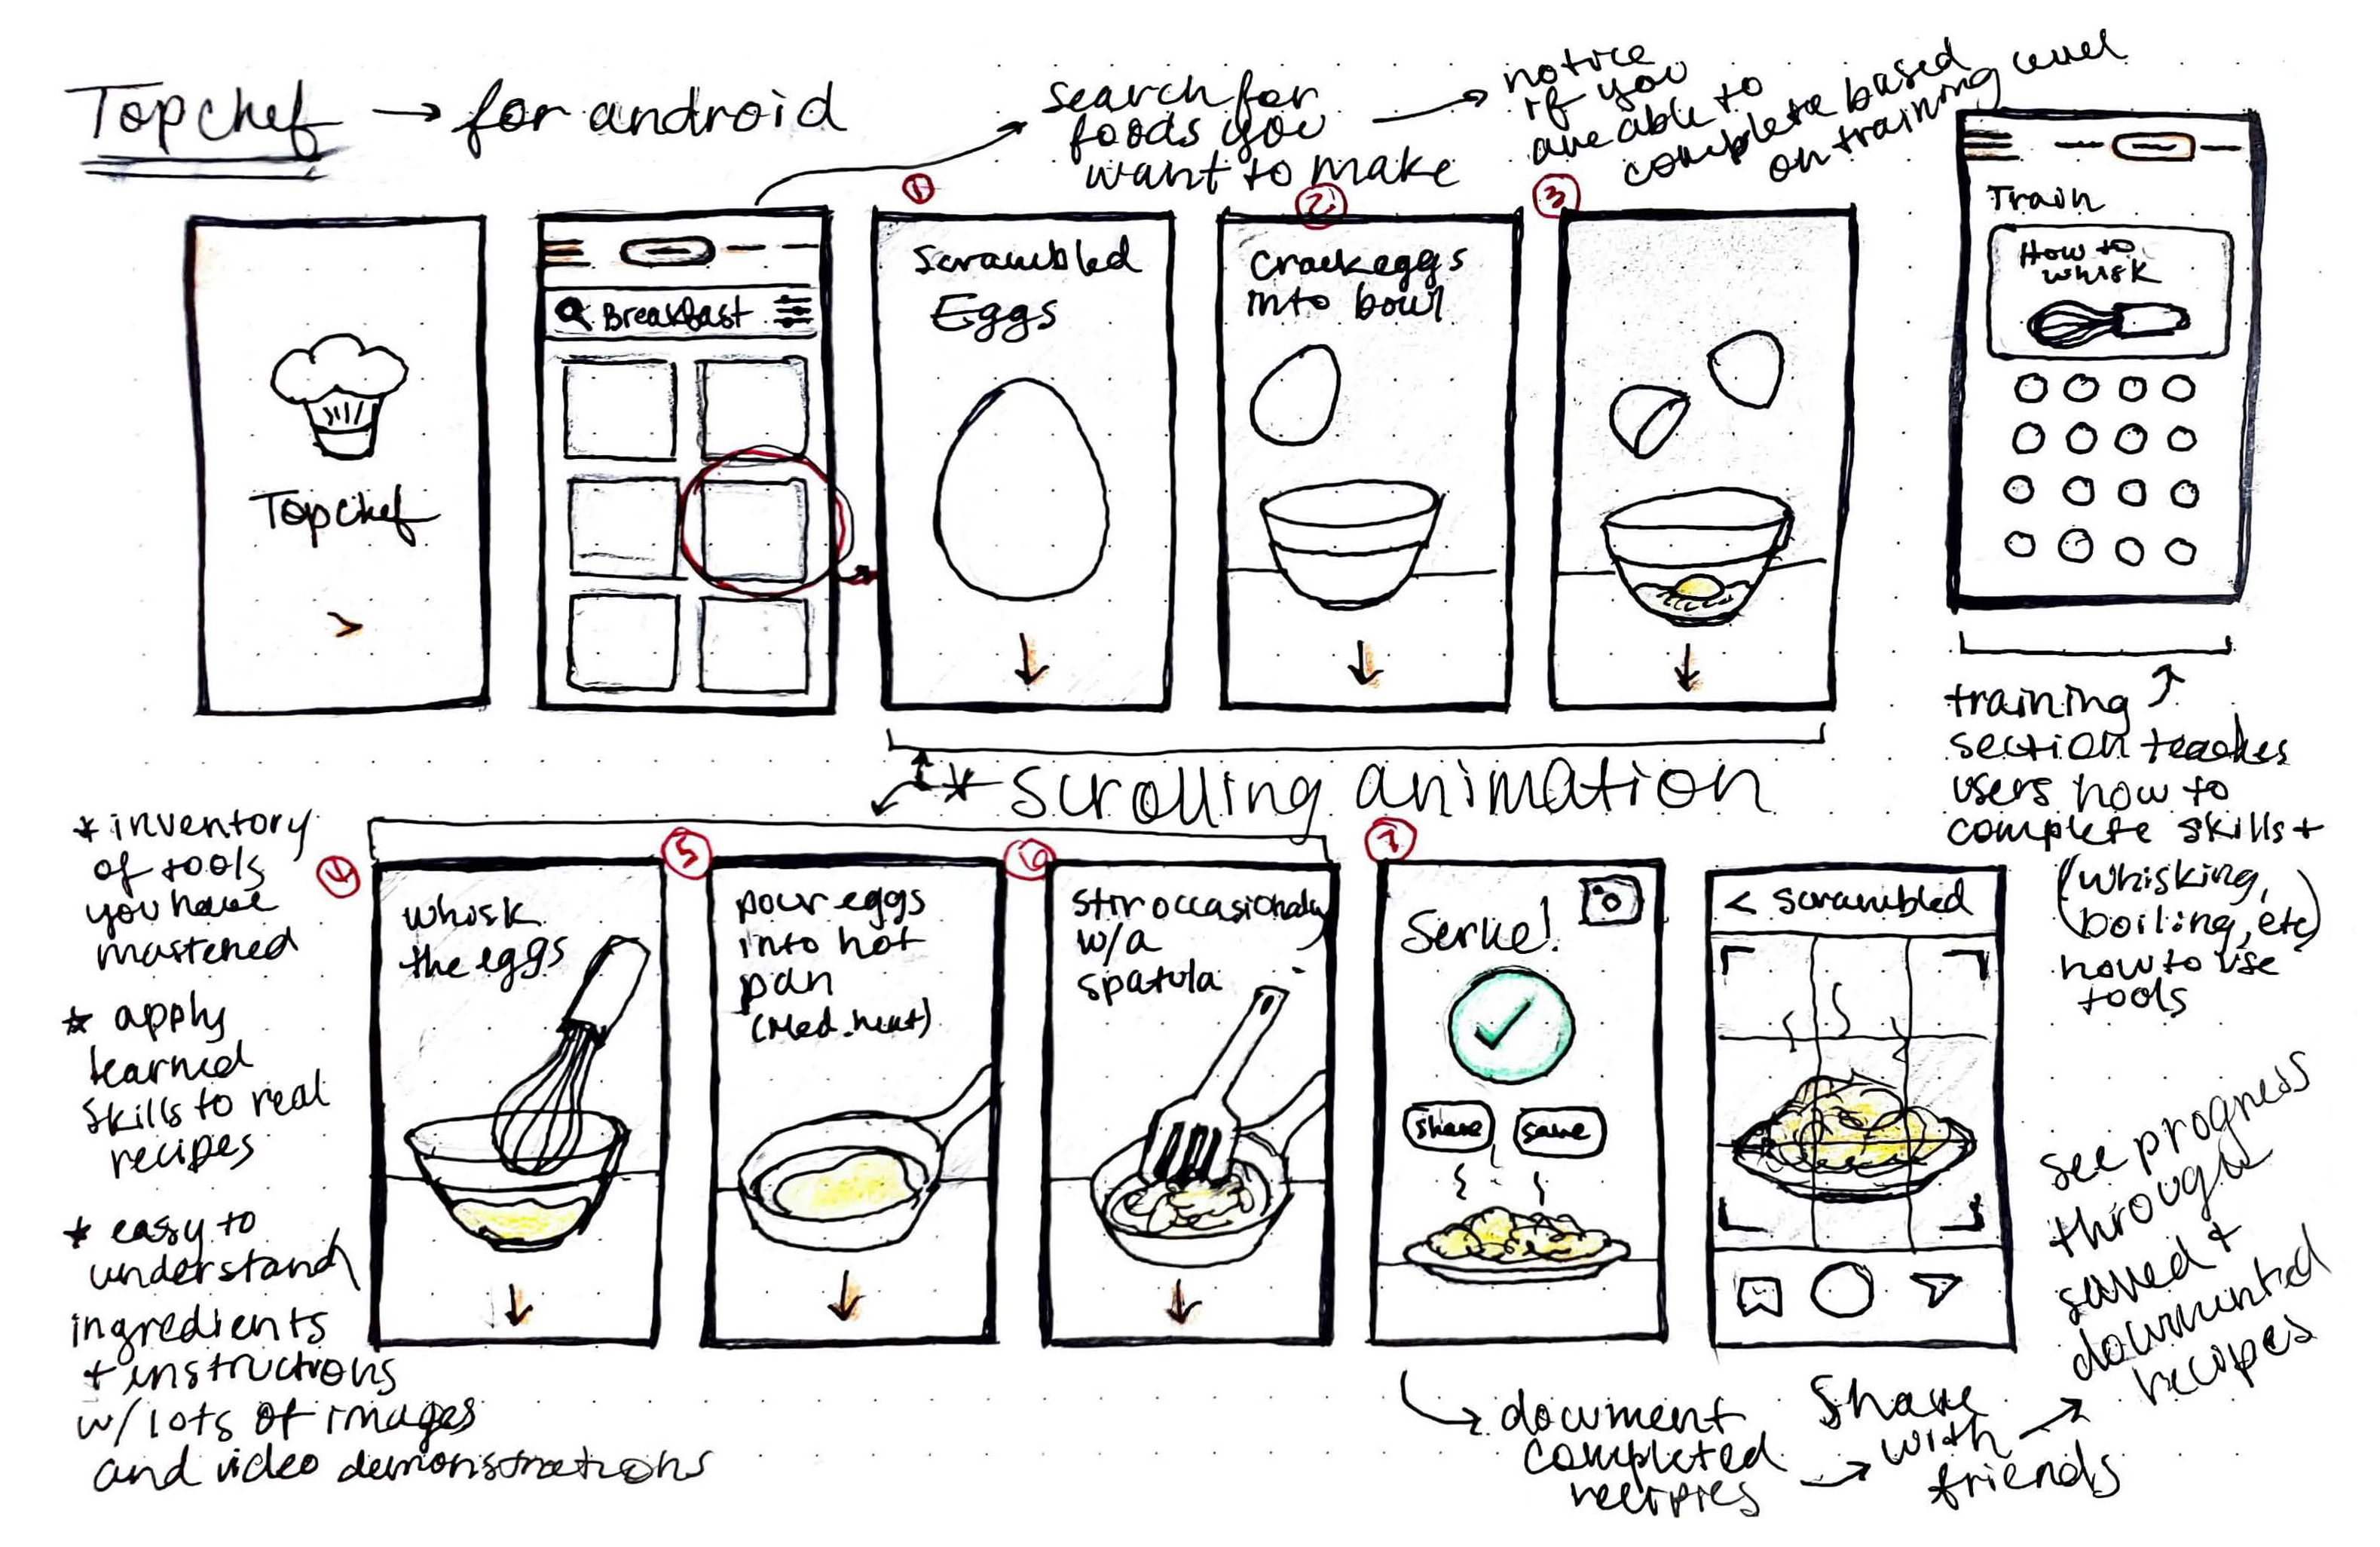 Topchef → for android
search for
foods you
want to make
notice
if you
are able to
complete based
on training level
Topchef
>
Breakfast
1
Scrambled
Eggs
2
Crack eggs
into bowl
3
Train
How to
whisk
training
section teaches
users how to
complete skills +
(whisking,
boiling, etc)
how to use
tools
* scrolling animation
* inventory
of tools
you have
mastered
* apply
learned
skills to real
recipes
* easy to
understand
ingredients
+ instructions
w/ lots of images
and video demonstrations
4
whisk
the eggs
5
pour eggs
into hot
pan
(Med. heat)
6
stir occasionally
w/a
spatula
7
Serve!
share
save
< scrambled
document
completed
recipies
share
with
friends
see progress
through
saved +
documented
recipes